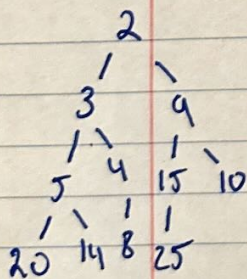 2
3 9
5 4 15 10
20 14 8 25